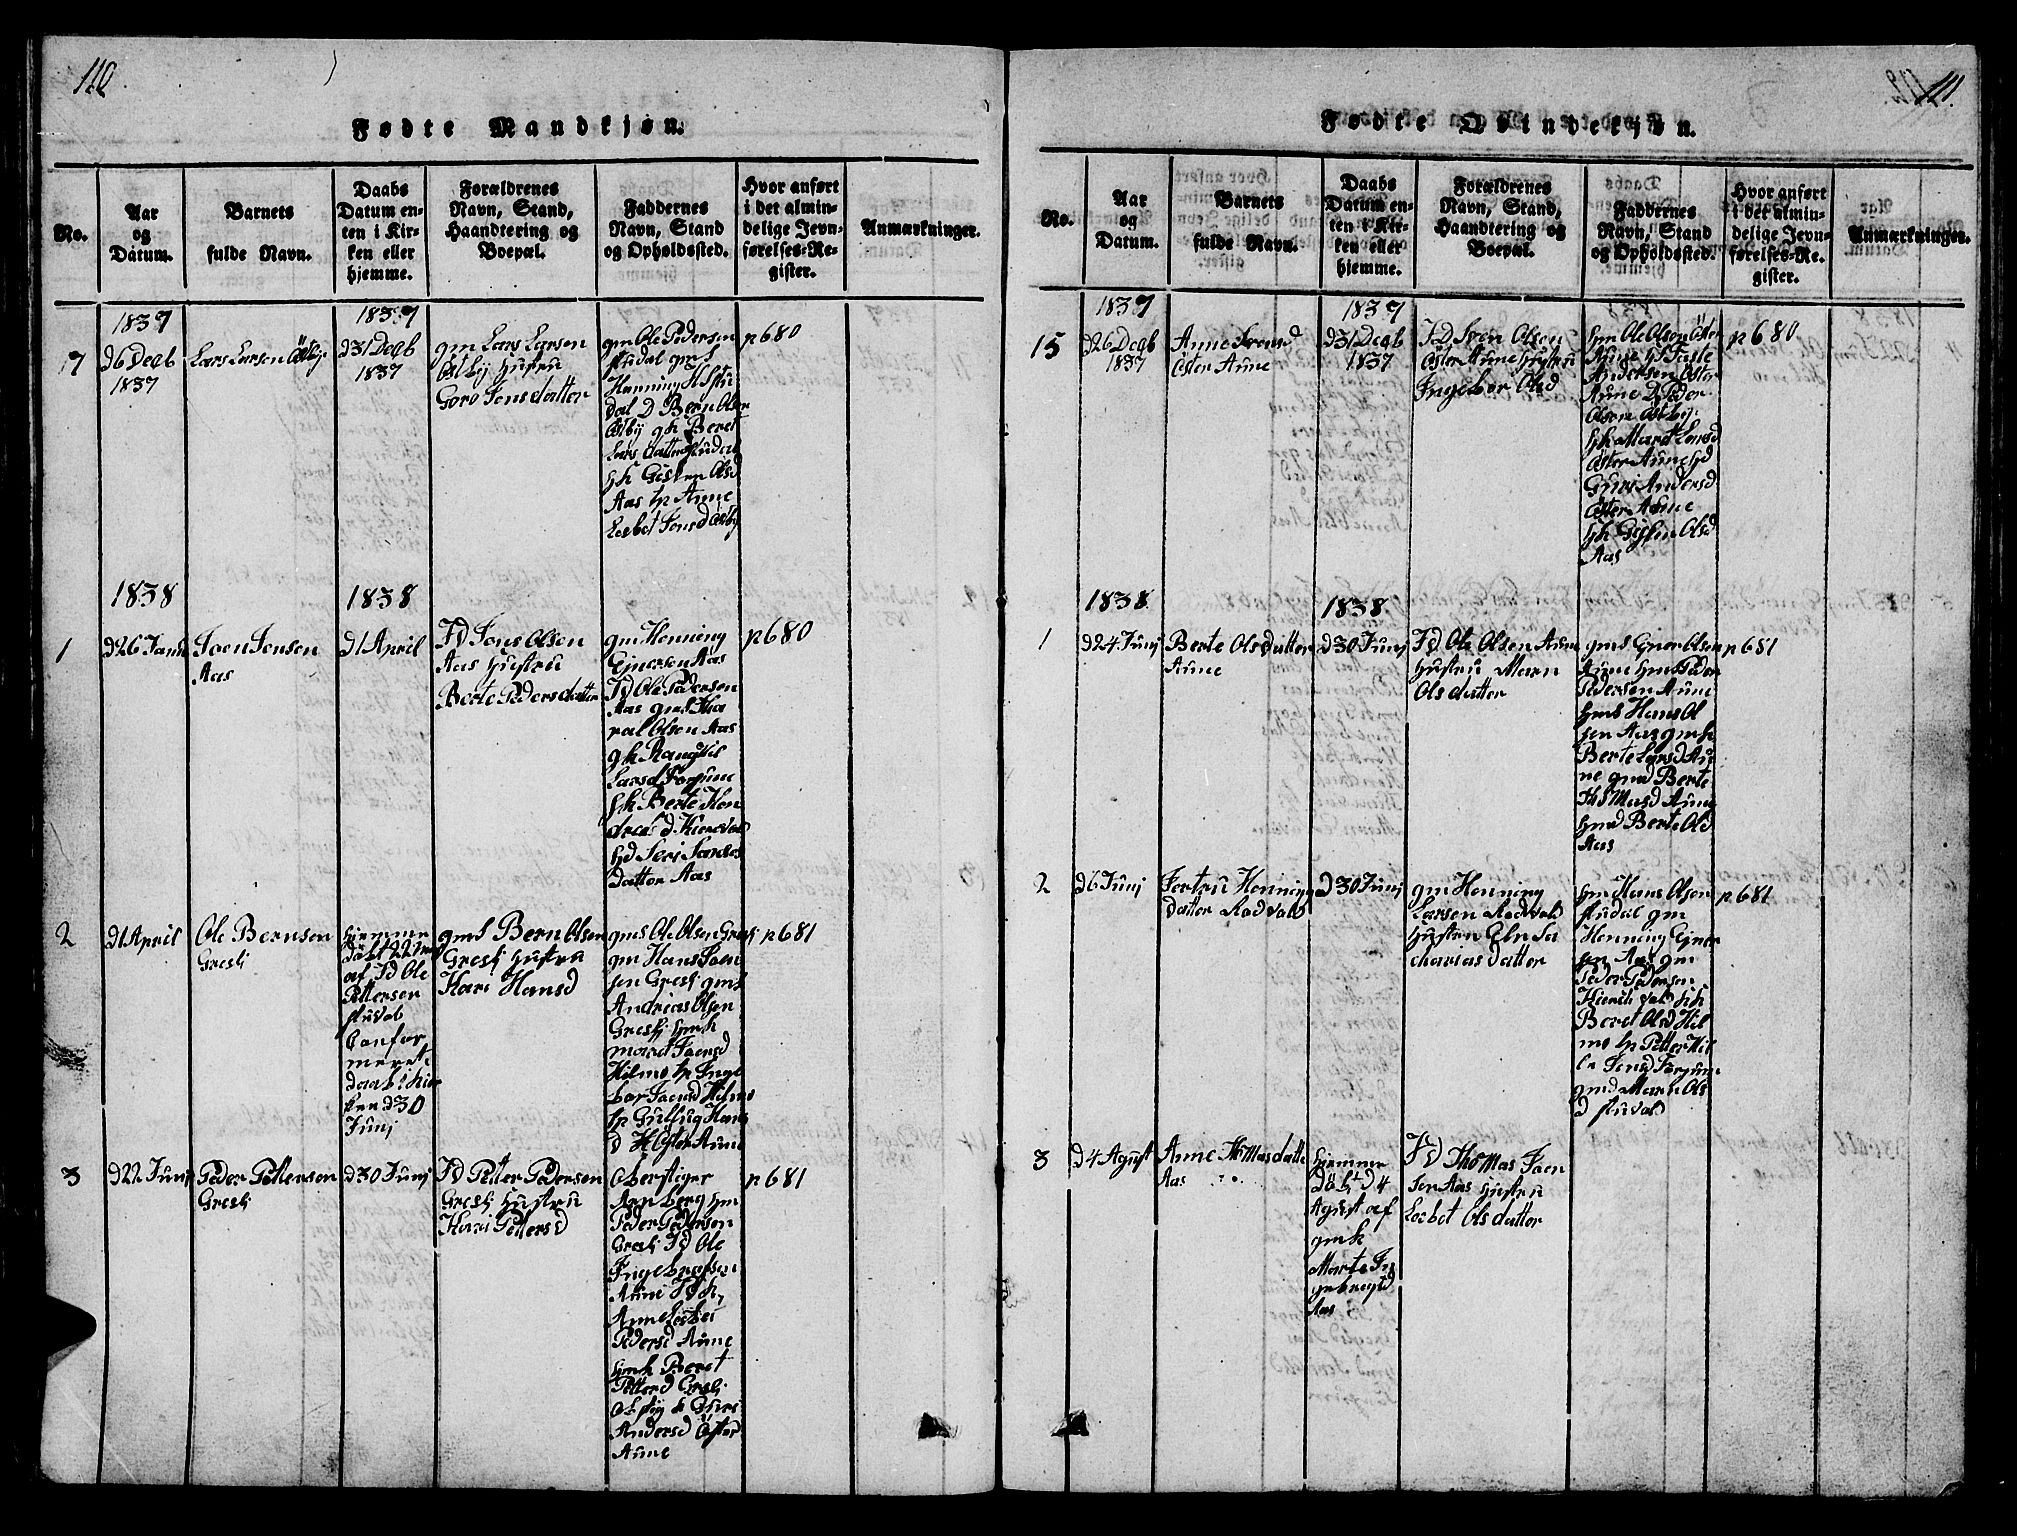 110
Fødte Mandkjøn.
No.
Aar
og
Datum.
Barnets
fulde Navn.
Daabs
Datum en-
ten i Kir-
ken eller
hjemme.
Forældrenes
Navn, Stand,
Haandtering og
Boepæl.
Faddernes
Navn, Stand
og Opholdssted.
Hvor anført
i det almin-
delige Jevn-
førelses-Re-
gister.
Anmærkninger.
17
1837
d6 Decb
1837
Lars Larsen Östby
1837
d31 Decb
1837
gm Lars Larsen
Östby Hustru
Goro Jonsdatter
gm Ole Pedersen
Studal gmS
Henning H Stu
dal D Bern Olsen
Östby gk Beret
Lars datter Studal
gk Gisken Olsd
Aas hp Anne
Lesbet Jonsd Östby
p 680
1838
1838
1
d26 Janu
Joen Jonsen
Aas
d1 April
Jd Jons Olsen
Aas Hustru
Berte Peders datter
gm Henning
Ejnersen Aas
Jd Ole Pedersen
Aas gmS Ha
ral Olsen Aas
gk Rangnil
Larsd Forsum
gk Berte Hen
dricks d.
hd Seri Jonsos
datter Aas
p 680
2
d1 April
Ole Bernsen
Gresli
hiemme
döbt 22
af Jd Ole
Pettersen
Stuval
Confor
meret
daab i kir
ken d30
Junj
gmS Bern Olsen
Gresli Hustru
Kari Hansd
gmS Ole Olsen Gresli
gm Hans Joen
sen Gresli gmS
Andrias Olsen
Gresli gmk
Maret Joensd
Hilmo hp Inge
bor Joensd Hilmo
hp Gullug Hans
d H Öster Aune
p 681
3
d22 Junj
Peder Pettersen
Gresli
d30 Junj
Jd Petter Pedersen
Gresli Hustru
Kari Pettersd
Oberstiger
Aspberg gm
Peder Pedersen
Gresli Jd Ole
Ingebregtsen
Aune Jdk
Anne Lesbet
Pedersd Aune
gmk Beret
Petterd Gresli
Guri
Andersd Öster
Aune
p 681
111.
Fødte Qvindekjøn.
No.
Aar
og
Datum.
Barnets
fulde Navn.
Daabs
Datum en-
ten i Kir-
ken eller
hjemme.
Forældrenes
Navn, Stand,
Haandtering og
Boepæl.
Faddernes
Navn, Stand
og Opholdssted.
Hvor anført
i det almin-
delige Jevn-
førelses-Re-
gister.
Anmærkninger.
15
1837
d26 Decb
1837
Anne Svensd
Öster Aune
1837
d31 Decb
1837
JD Sven Olsen
Öster Aune Hustru
Ingebor Olsd
gm Ole Olson Öster
Aune
Andersen Öster
Aune D Peder
Olsen Östby
gk Maret Larsd
Öster Aune hd
Guri Andersd
Öster Aune
gk Gisken Olsd
Aas
p 680
1838
1838
1
d24 Junj
Berte Olsdatter
Aune
d30 Junj
Jd Ole Olsen Aune
Hustru Marn
Olsdatter
gmS Einer Olsen
Aune gmS Peder
Pedersen Aune
gmS Hans Ol
sen Aas gmk
Berte Larsd Au
ne gmd Berte
Thomasd Aune
gmd Berte Olsd
Aas
p 681
2
d6 Junj
Jertru Henning
datter Rodvold
D30 Junj
gm Henning
Larsen Rodvold
Hustru Eln Sa
charias datter
gm Hans Olsen
Studal gm
Henning Ejner
sen Aas gm
Peder Pedersen
Kierchvold gk
Beret Olsd Hil
mo hp Petter Hil
Jensd Forsum
gmd Marn Ols
d Stuvold
p 681
3
d4 Agust
Anne Thomasdatter
Aas
hiemme
döbt d4
Agust af
gmk
Marte In
gebregtsd
Aas
Jd Thomas Joen
sen Aas Hustru
Lesbet Olsdatter